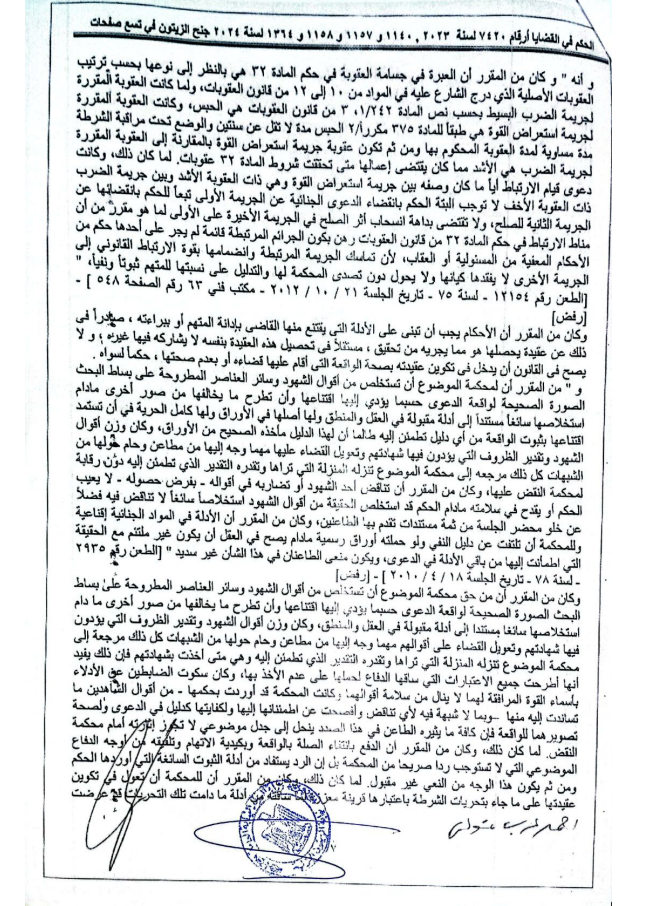 الحكم في القضايا أرقام ٧٤٢٠ لسنة ٢٠٢٣ ، ١١٤٠ و ١١٥٧ و ١١٥٨ و ١٣٦٤ لسنة ٢٠٢٤ جنح الزيتون في تسع صفحات
و أنه " و كان من المقرر أن العبرة في جسامة العقوبة في حكم المادة ٣٢ هي بالنظر إلى نوعها بحسب ترتيب
العقوبات الأصلية الذي درج الشارع عليه في المواد من ١٠ إلى ١٢ من قانون العقوبات، ولما كانت العقوبة المقررة
لجريمة الضرب البسيط بحسب نص المادة ١/٢٤٢، ٣ من قانون العقوبات هي الحبس، وكانت العقوبة المقررة
لجريمة استعراض القوة هي طبقاً للمادة ٣٧٥ مكرراً/٢ الحبس مدة لا تقل عن سنتين والوضع تحت مراقبة الشرطة
مدة مساوية لمدة العقوبة المحكوم بها ومن ثم تكون عقوبة جريمة استعراض القوة بالمقارنة إلى العقوبة المقررة
لجريمة الضرب هي الأشد مما كان يقتضى إعمالها متى تحققت شروط المادة ٣٢ عقوبات. لما كان ذلك، وكانت
دعوى قيام الارتباط أياً ما كان وصفه بين جريمة استعراض القوة وهي ذات العقوبة الأشد وبين جريمة الضرب
ذات العقوبة الأخف لا توجب البتة الحكم بانقضاء الدعوى الجنائية عن الجريمة الأولى تبعاً للحكم بانقضائها عن
الجريمة الثانية للصلح، ولا تقتضى بداهة انسحاب أثر الصلح في الجريمة الأخيرة على الأولى لما هو مقرر من أن
مناط الارتباط في حكم المادة ٣٢ من قانون العقوبات رهن بكون الجرائم المرتبطة قائمة لم يجر على أحدها حكم من
الأحكام المعفية من المسئولية أو العقاب، لأن تماسك الجريمة المرتبطة وانضمامها بقوة الارتباط القانوني إلى
الجريمة الأخرى لا يفقدها كيانها ولا يحول دون تصدى المحكمة لها والتدليل على نسبتها للمتهم ثبوتاً ونفياً، "
[الطعن رقم ١٢١٥٤ - لسنة ٧٥ - تاريخ الجلسة ٢١ / ١٠ / ٢٠١٢ - مكتب فني ٦٣ رقم الصفحة ٥٤٨ ] -
[رفض]
وكان من المقرر أن الأحكام يجب أن تبنى على الأدلة التي يقتنع منها القاضى بإدانة المتهم أو ببراءته ، صادراً في
ذلك عن عقيدة يحصلها هو مما يجريه من تحقيق ، مستقلاً في تحصيل هذه العقيدة بنفسه لا يشاركه فيها غيره ؛ و لا
يصح في القانون أن يدخل في تكوين عقيدته بصحة الواقعة التي أقام عليها قضاءه أو بعدم صحتها ، حكماً لسواه .
و " من المقرر أن لمحكمة الموضوع أن تستخلص من أقوال الشهود وسائر العناصر المطروحة على بساط البحث
الصورة الصحيحة لواقعة الدعوى حسبما يؤدي إليها اقتناعها وأن تطرح ما يخالفها من صور أخرى مادام
استخلاصها سائغاً مستنداً إلى أدلة مقبولة في العقل والمنطق ولها أصلها في الأوراق ولها كامل الحرية في أن تستمد
اقتناعها بثبوت الواقعة من أي دليل تطمئن إليه طالما أن لهذا الدليل مأخذه الصحيح من الأوراق، وكان وزن أقوال
الشهود وتقدير الظروف التي يؤدون فيها شهادتهم وتعويل القضاء عليها مهما وجه إليها من مطاعن وحام حولها من
الشبهات كل ذلك مرجعه إلى محكمة الموضوع تنزله المنزلة التي تراها وتقدره التقدير الذي تطمئن إليه دون رقابة
لمحكمة النقض عليها، وكان من المقرر أن تناقض أحد الشهود أو تضاربه في أقواله - بفرض حصوله - لا يعيب
الحكم أو يقدح في سلامته مادام الحكم قد استخلص الحقيقة من أقوال الشهود استخلاصاً سائغاً لا تناقض فيه فضلاً
عن خلو محضر الجلسة من ثمة مستندات تقدم بها الطاعنين، وكان من المقرر أن الأدلة في المواد الجنائية إقناعية
وللمحكمة أن تلتفت عن دليل النفي ولو حملته أوراق رسمية مادام يصح في العقل أن يكون غير ملتئم مع الحقيقة
التي اطمأنت إليها من باقي الأدلة في الدعوى، ويكون منعى الطاعنان في هذا الشأن غير سديد " [الطعن رقم ٢٩٣٥
- لسنة ٧٨ - تاريخ الجلسة ١٨ / ٤ / ٢٠١٠ ] - [رفض]
وكان من المقرر أن من حق محكمة الموضوع أن تستخلص من أقوال الشهود وسائر العناصر المطروحة على بساط
البحث الصورة الصحيحة لواقعة الدعوى حسبما يؤدي إليها اقتناعها وأن تطرح ما يخالفها من صور أخرى ما دام
استخلاصها سائغا مستندا إلى أدلة مقبولة في العقل والمنطق، وكان وزن أقوال الشهود وتقدير الظروف التي يؤدون
فيها شهادتهم وتعويل القضاء على أقوالهم مهما وجه إليها من مطاعن وحام حولها من الشبهات كل ذلك مرجعه إلى
محكمة الموضوع تنزله المنزلة التي تراها وتقدره التقدير الذي تطمئن إليه وهي متى أخذت بشهادتهم فإن ذلك يفيد
أنها أطرحت جميع الاعتبارات التي ساقها الدفاع لحملها على عدم الأخذ بها، وكان سكوت الضابطين عن الأدلاء
بأسماء القوة المرافقة لهما لا ينال من سلامة أقوالهما وكانت المحكمة قد أوردت بحكمها - من أقوال الشاهدين ما
تساندت إليه منها - وبما لا شبهة فيه لأي تناقض وأفصحت عن اطمئنانها إليها ولكفايتها كدليل في الدعوى ولصحة
تصويرهما للواقعة فإن كافة ما يثيره الطاعن في هذا الصدد ينحل إلى جدل موضوعي لا تجوز إثارته أمام محكمة
النقض. لما كان ذلك، وكان من المقرر أن الدفع بانتفاء الصلة بالواقعة وبكيدية الاتهام وتلفيقه من أوجه الدفاع
الموضوعي التي لا تستوجب ردا صريحا من المحكمة بل إن الرد يستفاد من أدلة الثبوت السائغة التي أوردها الحكم
ومن ثم يكون هذا الوجه من النعي غير مقبول. لما كان ذلك، وكان من المقرر أن للمحكمة أن تعول في تكوين
عقيدتها على ما جاء بتحريات الشرطة باعتبارها قرينة معززة لما ساقته من أدلة ما دامت تلك التحريات قد عرضت